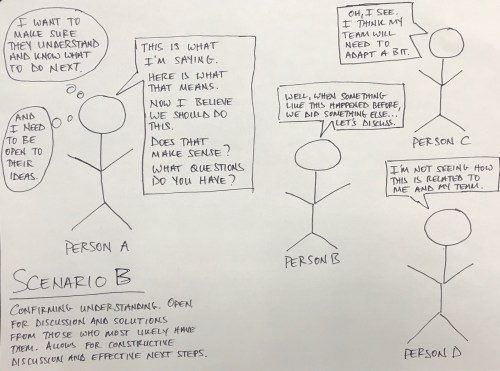 I WANT TO
MAKE SURE
THEY UNDERSTAND
AND KNOW WHAT
TO DO NEXT.
AND
I NEED
TO BE
OPEN TO
THEIR
IDEAS.
THIS IS WHAT
I'M SAYING.
HERE IS WHAT
THAT MEANS.
NOW I BELIEVE
WE SHOULD DO
THIS.
DOES THAT
MAKE SENSE?
WHAT QUESTIONS
DO YOU HAVE?
PERSON A
WELL, WHEN SOMETHING
LIKE THIS HAPPENED BEFORE,
WE DID SOMETHING ELSE...
LET'S DISCUSS.
PERSON B
OH, I SEE.
I THINK MY
TEAM WILL
NEED TO
ADAPT A BIT.
PERSON C
I'M NOT SEEING HOW
THIS IS RELATED TO
ME AND MY TEAM.
PERSON D
SCENARIO B
CONFIRMING UNDERSTANDING. OPEN
FOR DISCUSSION AND SOLUTIONS
FROM THOSE WHO MOST LIKELY HAVE
THEM. ALLOWS FOR CONSTRUCTIVE
DISCUSSION AND EFFECTIVE NEXT STEPS.